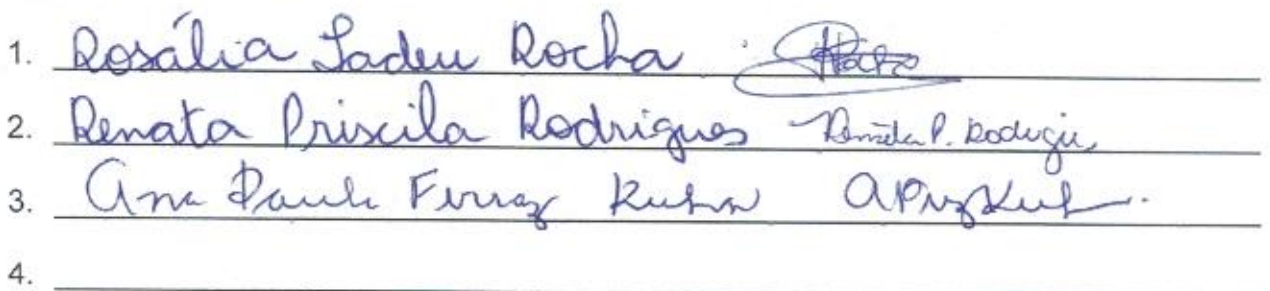 1. Rosália Tadeu Rocha
2. Renata Priscila Rodrigues Renata P. Rodrigu
3. Ana Paula Ferraz Kuhn
4.